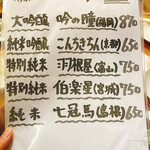 大吟醸 吟の瞳(福岡) 870
純米吟醸 こんちきちん(京都) 650
特別純米 羽根屋(富山) 750
特別純米 伯楽星(宮城) 750
純米 七冠馬(島根) 650